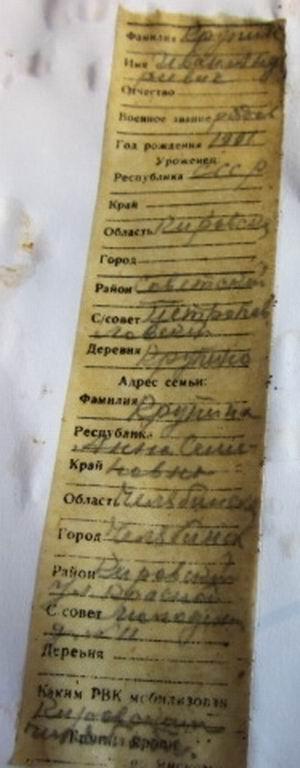 Фамилия Крупин
Имя Иван Анд
реевич
Отчество
Военное звание рядов
Год рождения 1901
Уроженец
Республика СССР
Край
Область Кировск
Город
Район Советский
С/совет Петропав
ловский
Деревня Крупино
Адрес семьи:
Фамилия Крупина
Республика
Анна Семе
Край новна
Област Челябинск
Город Челябинск
Район Кировский
ул. Красной
С-совет Молодежи
Деревня
Каким РВК мобилизован
Кировским